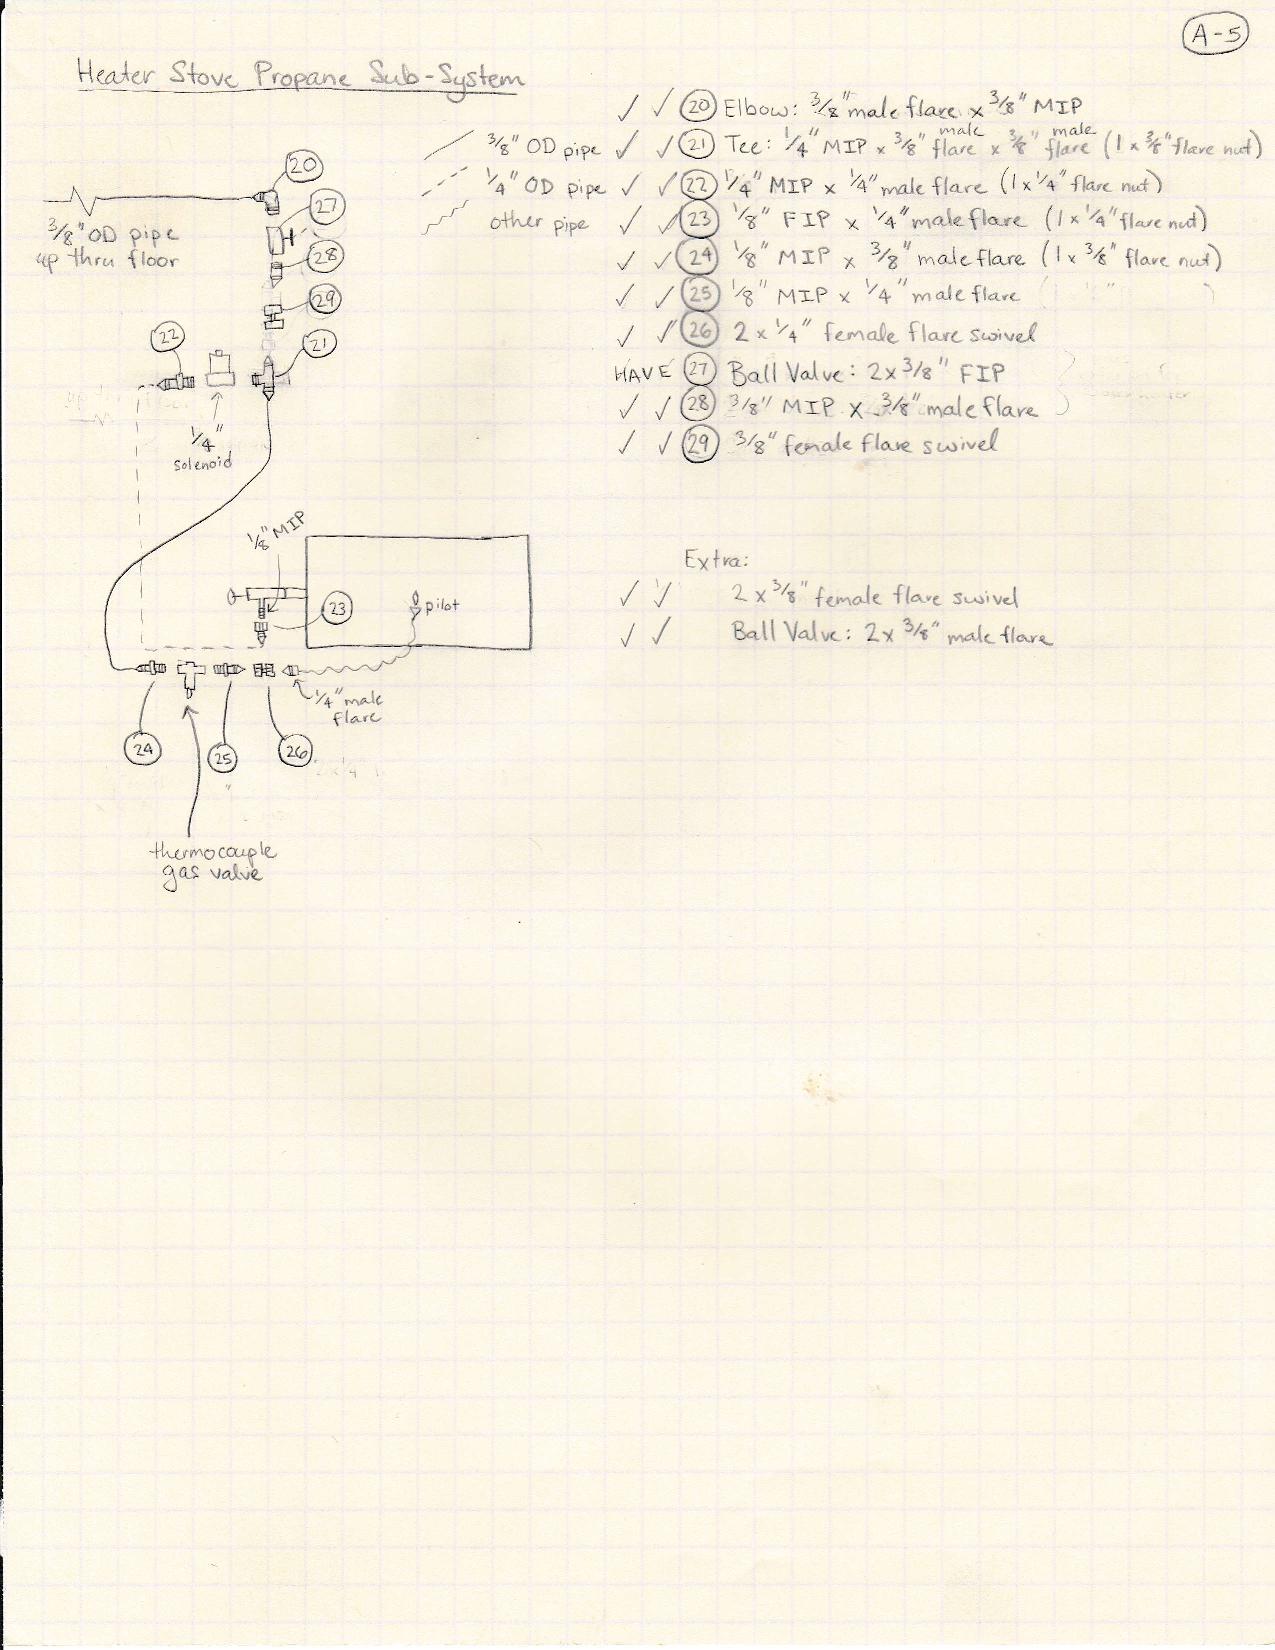 A-5
Heater Stove Propane Sub-System
3/8" OD pipe
1/4" OD pipe
other pipe
✓ ✓ 20 Elbow: 3/8" male flare x 3/8" MIP
✓ ✓ 21 Tee: 1/4" MIP x 3/8" male flare x 3/8" male flare (1 x 3/8" flare nut)
✓ ✓ 22 1/4" MIP x 1/4" male flare (1 x 1/4" flare nut)
✓ ✓ 23 1/8" FIP x 1/4" male flare (1 x 1/4" flare nut)
✓ ✓ 24 1/8" MIP x 3/8" male flare (1 x 3/8" flare nut)
✓ ✓ 25 1/8" MIP x 1/4" male flare
✓ ✓ 26 2 x 1/4" female flare swivel
HAVE 27 Ball Valve: 2 x 3/8" FIP
✓ ✓ 28 3/8" MIP x 3/8" male flare
✓ ✓ 29 3/8" female flare swivel
Extra:
✓ ✓ 2 x 3/8" female flare swivel
✓ ✓ Ball Valve: 2 x 3/8" male flare
20
27
3/8" OD pipe
up thru floor
28
29
22
21
1/4"
solenoid
1/8" MIP
23
pilot
1/4" male
flare
24
25
26
thermocouple
gas valve